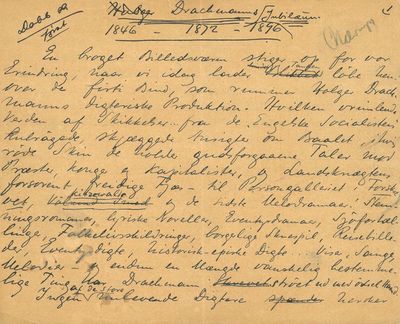 Holger Drachmanns Jubilæum
1846 - 1872 - 1896
1
En broget Billedsværm stiger op for vor
Erindring, naar vi idag lader Tanken løbe hen
over de firti Bind, som rummer Holger Drach
manns digteriske Produktion. Hvilken vrimlende
Verden af Skikkelser fra de "Engelske Socialisters"
skæggede Ansigter om Baalet, i hvis
røde Skin de holde gudsforgaaene Taler mod
Præster, Konge og Kapitalister, og Landsknægtens
freidige Fjæs - til Persongalleriet i "Forskre-
vet" og de sidste Melodramaer! Stem
ningsromaner, lyriske Noveller, Eventyrdramaer, Sjøfortæl-
linger, Folkelivsskildringer, borgerlige Skuespil, Reisebille-
der, Eventyrdigte, historisk-episke Digte... Viser, Sange,
Melodier - og endnu en Mængde vanskelig bestemme-
lige Ting har Drachmann strøet ud med ødsel Haand
Ingen af de store nulevende Digtere hersker